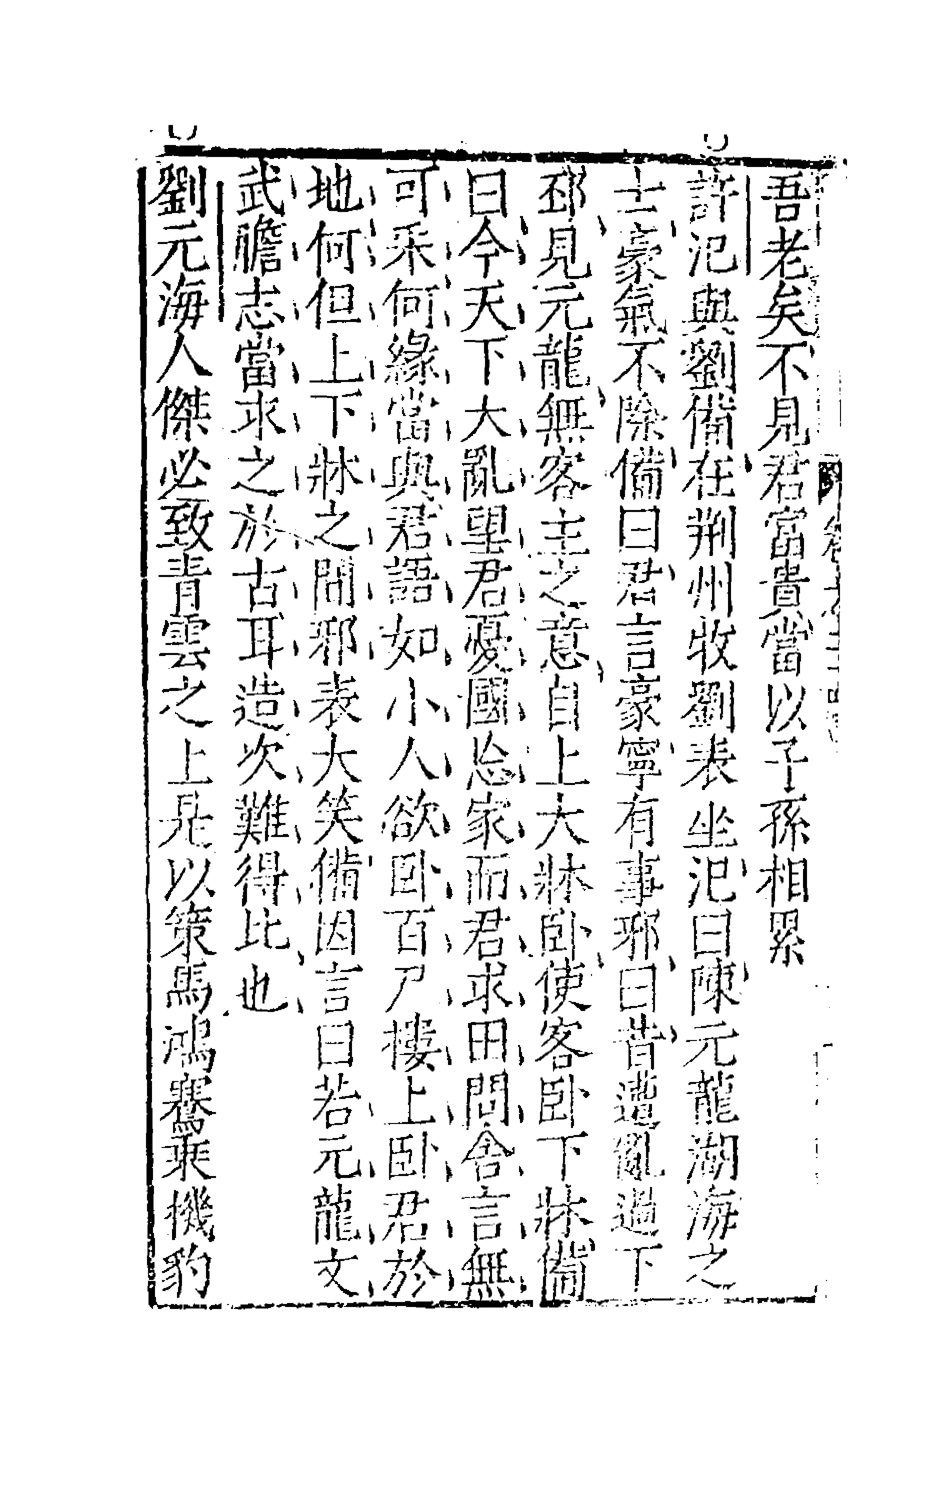 吾老矣不見君富貴當以子孫相累
許汜與劉備在荆州牧劉表坐汜曰陳元龍湖海之
士豪氣不除備曰君言豪寧有事邪曰昔遭亂過下
邳見元龍無客主之意自上大牀卧使客卧下牀備
曰今天下大亂望君憂國忘家而君求田問舍言無
可采何緣當與君語如小人欲卧百尺樓上卧君於
地何但上下牀之間邪表大笑備因言曰若元龍文
武膽志當求之於古耳造次難得比也
劉元海人傑必致青雲之上是以策馬鴻騫乘機豹